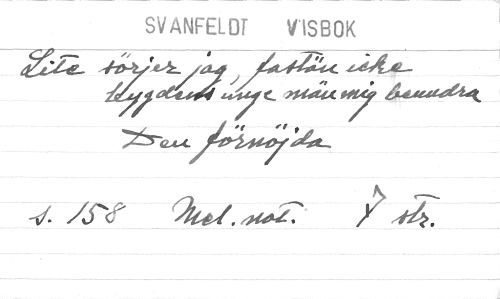 SVANFELDT VISBOK
Lite sörjer jag, fastän icke
bygdens unge män mig beundra
Den förnöjda
s. 158 Mel. not. 7 str.